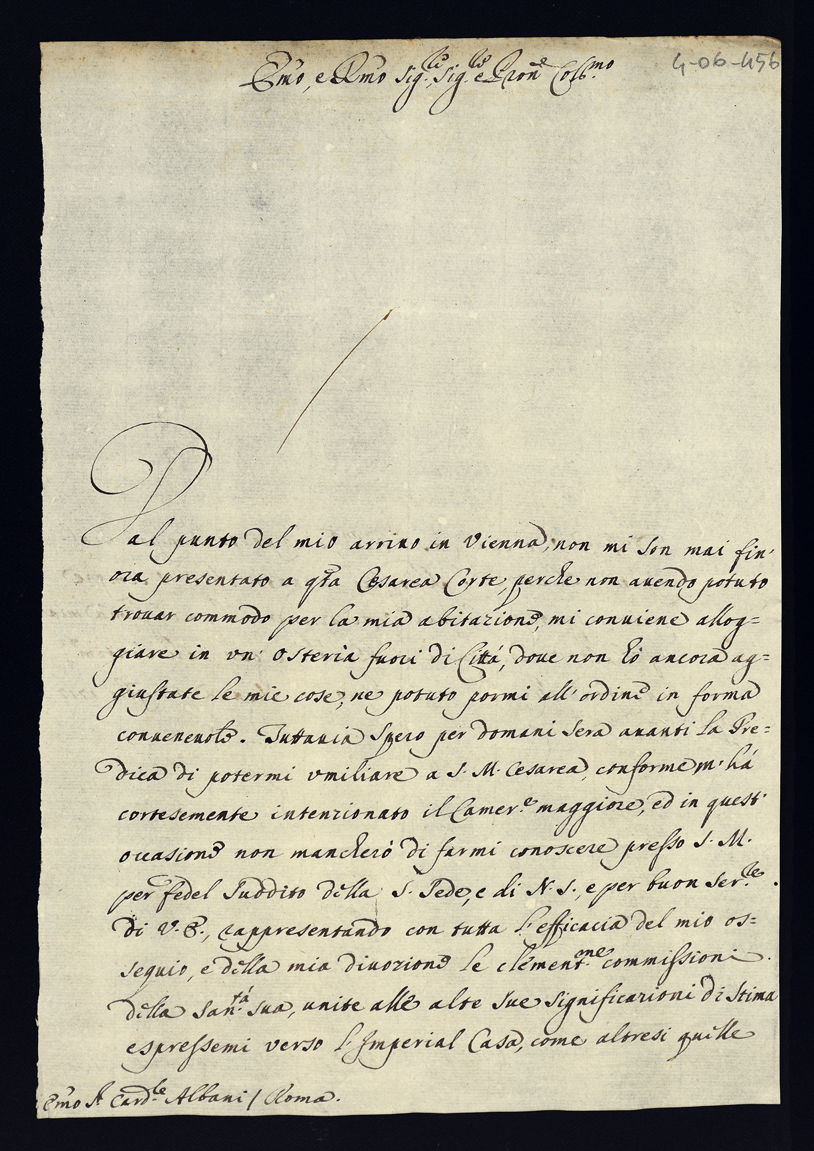 Emo, e Rmo Sig.re Sig.re e Pron.e Col.mo
4-06-456
Dal punto del mio arrivo in Vienna, non mi son mai fin'
ora presentato a qsta Cesarea Corte, perche non avendo potuto
trovar commodo per la mia abitazione, mi conviene allog=
giare in un' Osteria fuori di Cittá, dove non hó ancora ag=
giustate le mie cose, ne potuto pormi all'ordine in forma
convenevole. Tuttavia spero per domani sera avanti la Pre=
dica di potermi umiliare a S. M. Cesarea, conforme m'há
cortesemente intenzionato il Camer.e maggiore, ed in quest'
occasione non mancheró di farmi conoscere presso S. M.
per fedel Suddito della S. Sede, e di N. S., e per buon Ser.le
di V. E., rappresentando con tutta l'efficacia del mio os=
sequio, e della mia divozione le clement.me commissioni
della San.tá sua, unite alle alte sue significazioni di stima
espressemi verso l'Imperial Casa, come altresi quelle
Emo S.r Card.le Albani / Roma.